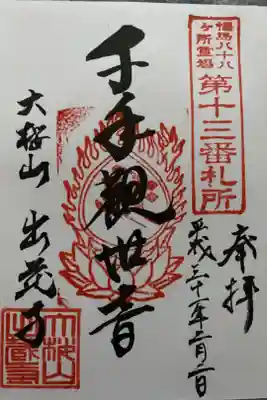 福島八十八
ヶ所霊場
第十三番札所
奉拝
平成三十一年二月二日
千手観世音
大桜山 出蔵寺